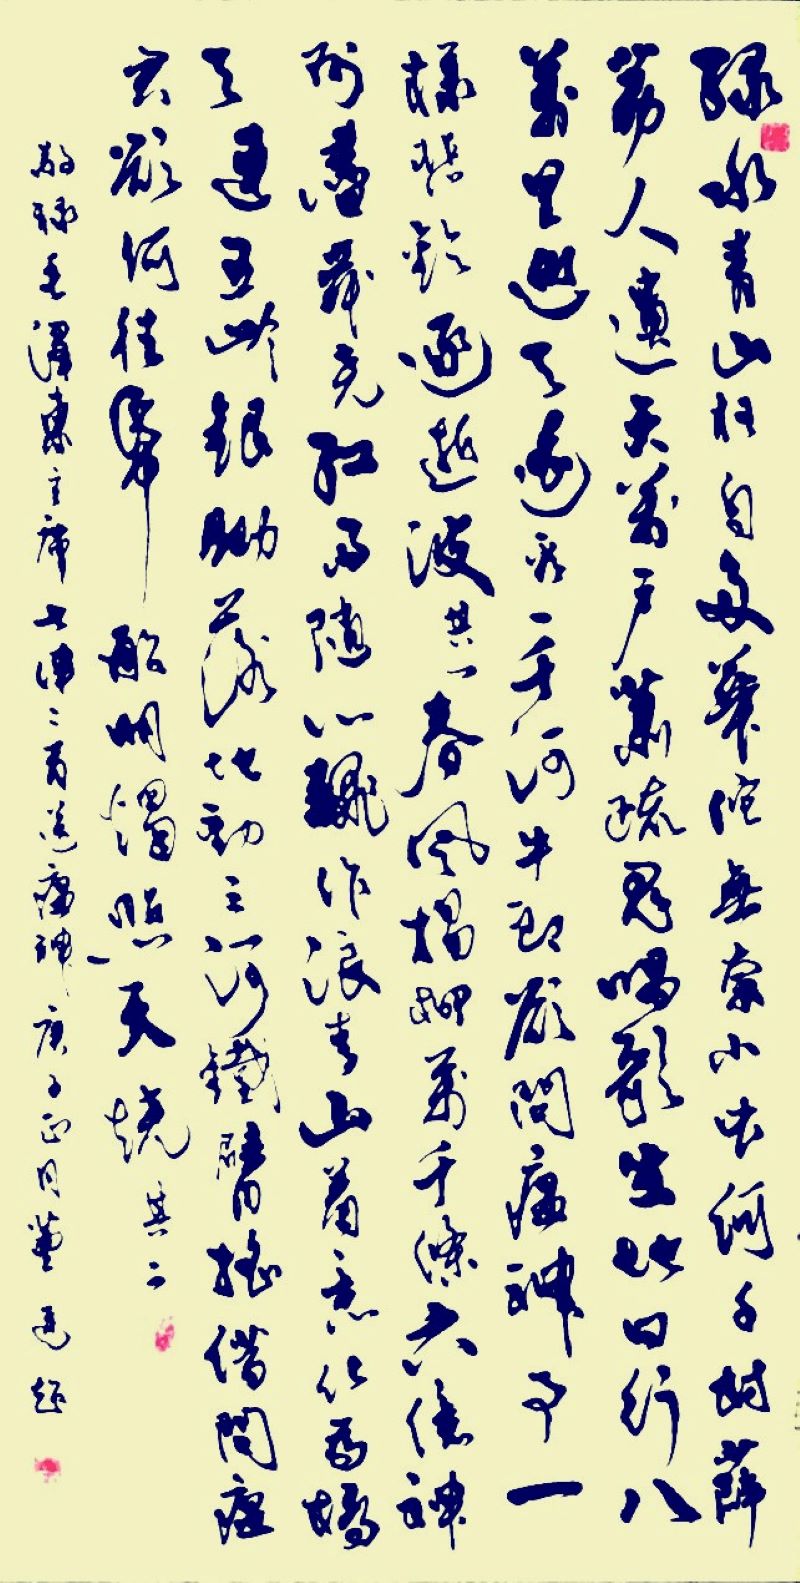 綠水青山枉自多華佗無奈小虫何千村薜
荔人遺矢萬戶蕭疏鬼唱歌坐地日行八
萬里巡天遙看一千河牛郎欲問瘟神事一
樣悲歡逐逝波其一春風楊柳萬千條六億神
州盡舜堯紅雨隨心翻作浪青山著意化為橋
天連五嶺銀鋤落地動三河鐵臂搖借問瘟
君欲何往紙船明燭照天燒其二
敬録毛澤東主席七律二首送瘟神庚子正月